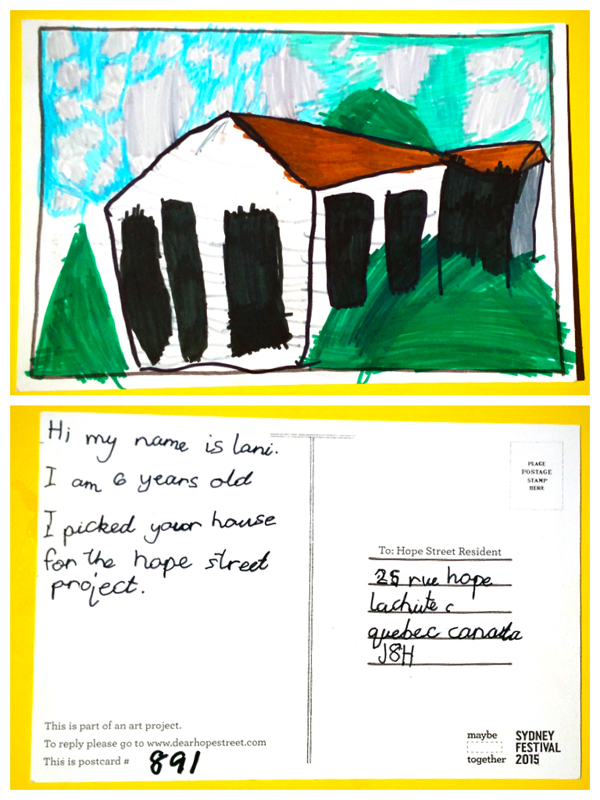 Hi my name is lani.
I am 6 years old
I picked your house
for the hope street
project.
This is part of an art project.
To reply please go to www.dearhopestreet.com
This is postcard # 891
PLACE
POSTAGE
STAMP
HERE
To: Hope Street Resident
25 rue hope
lachute c
quebec canada
J8H
maybe
together
SYDNEY
FESTIVAL
2015